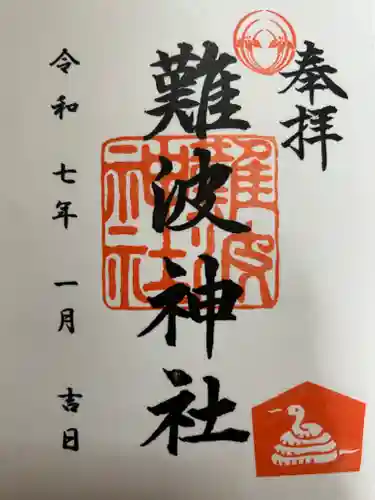 奉拝
難波神社
難波神社
令和七年一月吉日